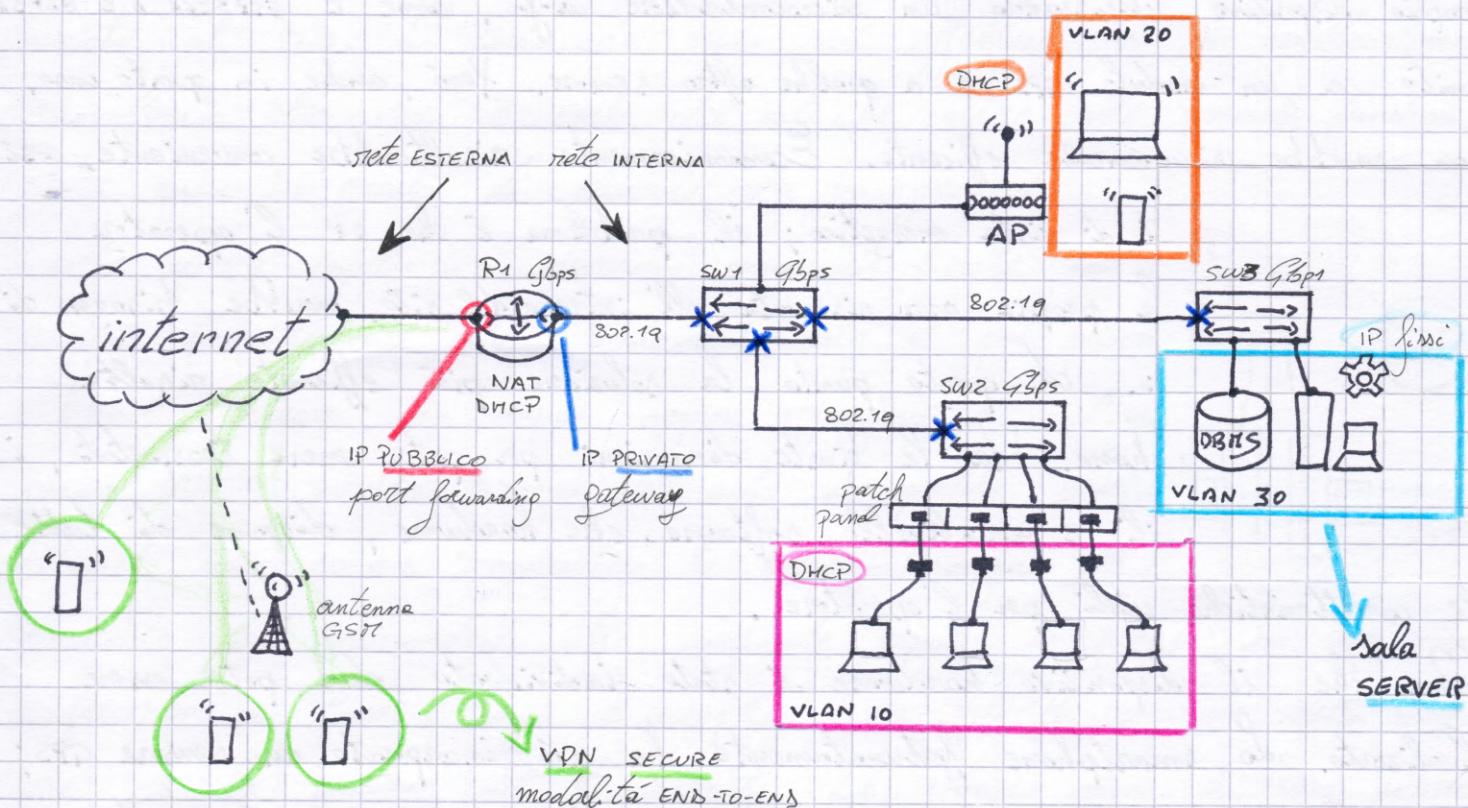 VLAN 20
DHCP
rete ESTERNA
rete INTERNA
AP
R1 Gbps
SW1 Gbps
SW3 Gbps
internet
802.1q
802.1q
IP fissi
NAT
DHCP
SW2 Gbps
802.1q
DBMS
IP PUBBLICO
port forwarding
IP PRIVATO
gateway
patch
panel
VLAN 30
DHCP
antenna
GSM
sala
SERVER
VLAN 10
VPN SECURE
modalità END-TO-END